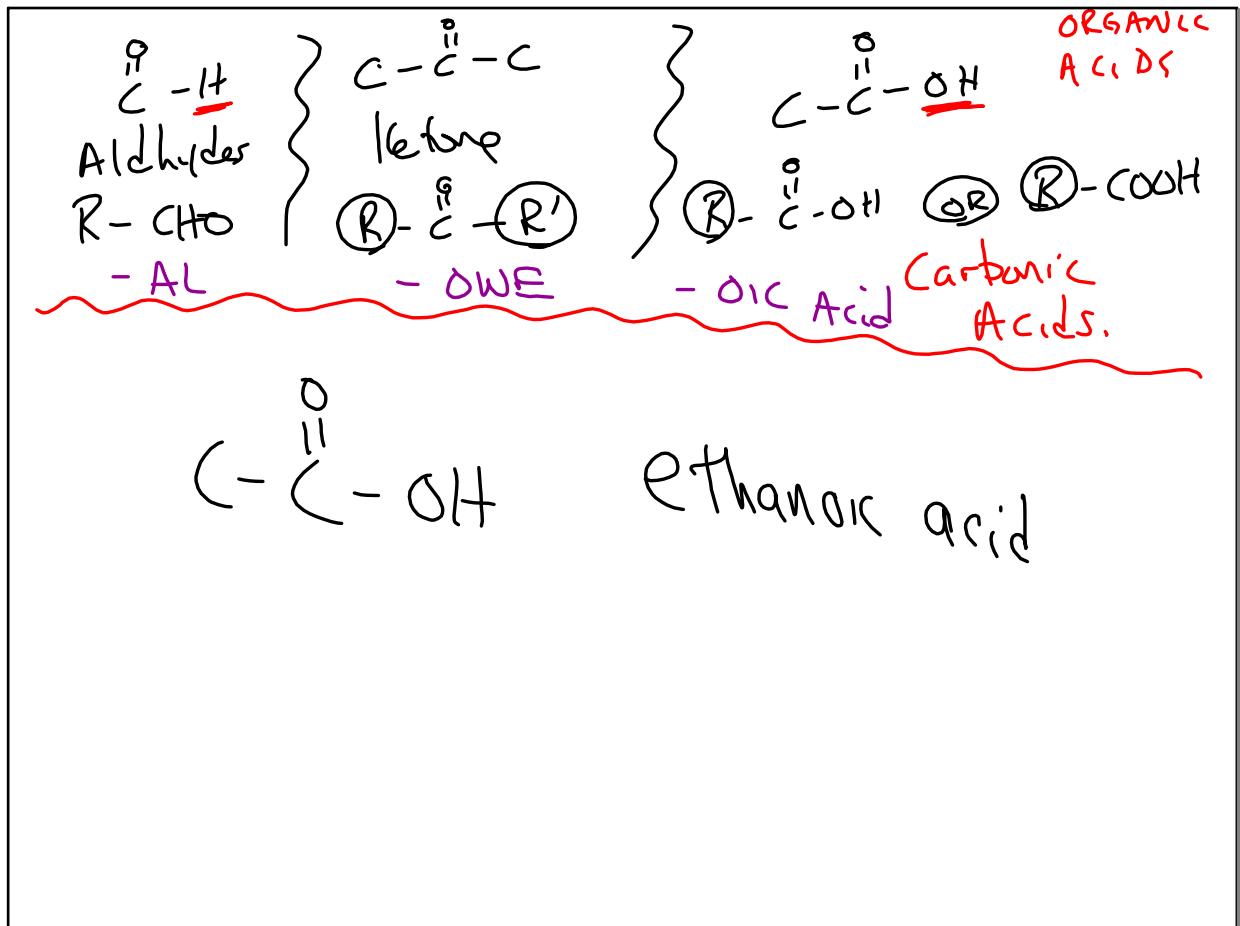 O
||
C - H
Aldhydes
R - CHO
- AL
O
||
C - C - C
Ketone
O
||
R - C - R'
- ONE
O
||
C - C - OH
ORGANIC
ACIDS
O
||
R - C - OH OR R - COOH
- OIC Acid
Carbonic
Acids.
O
||
C - C - OH
ethanoic acid